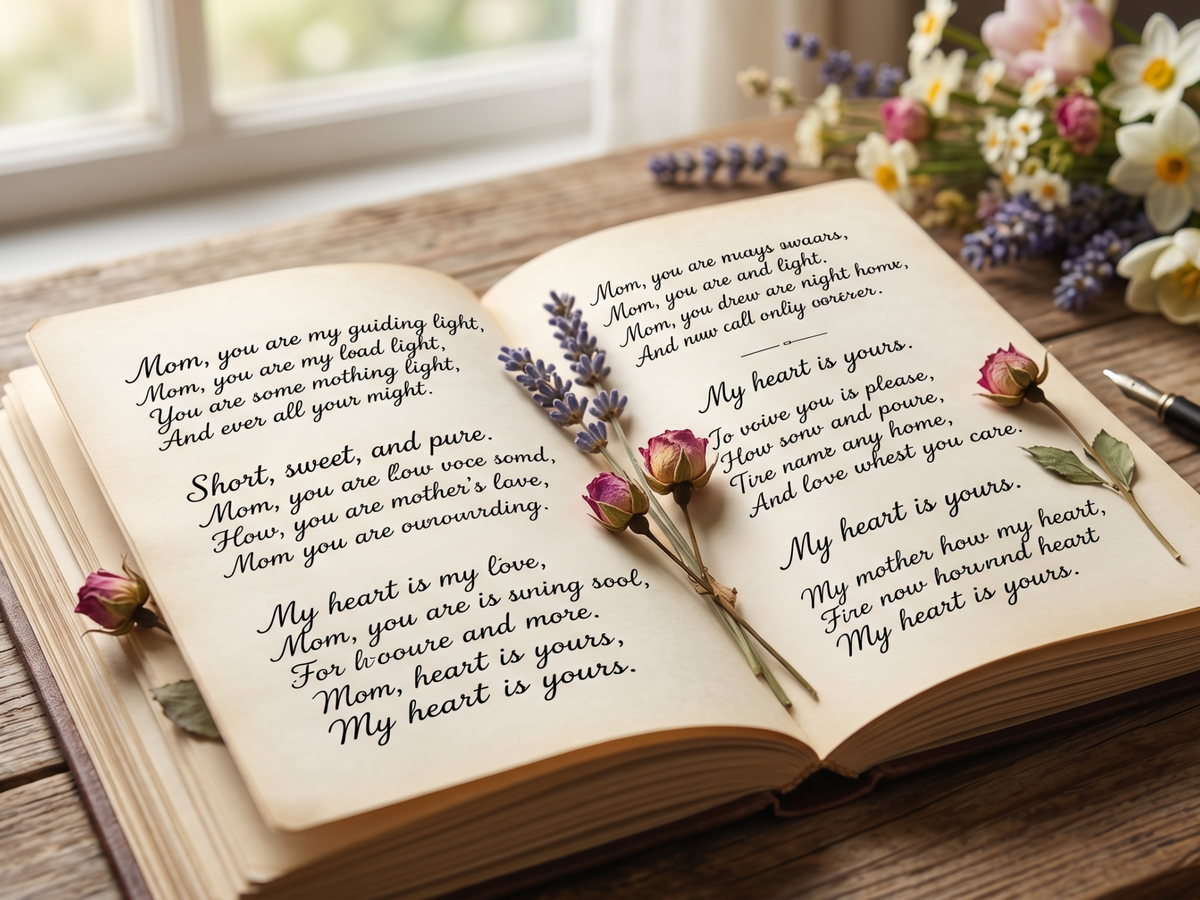 Mom, you are my guiding light,
Mom, you are my load light,
You are some mothing light,
And ever all your might.
Short, sweet, and pure.
Mom, you are voce somd,
How, you are mother's love,
Mom you are
My heart is my love,
Mom, you are is suning sool,
For and more.
Mom, heart is yours,
My heart is yours.
Mom, you are
Mom, you are and light.
Mom, you drew are night home,
And call
My heart is yours.
To you is please,
How and
any home,
And love whest you care.
My heart is yours.
My mother how my heart,
now heart
My heart is yours.